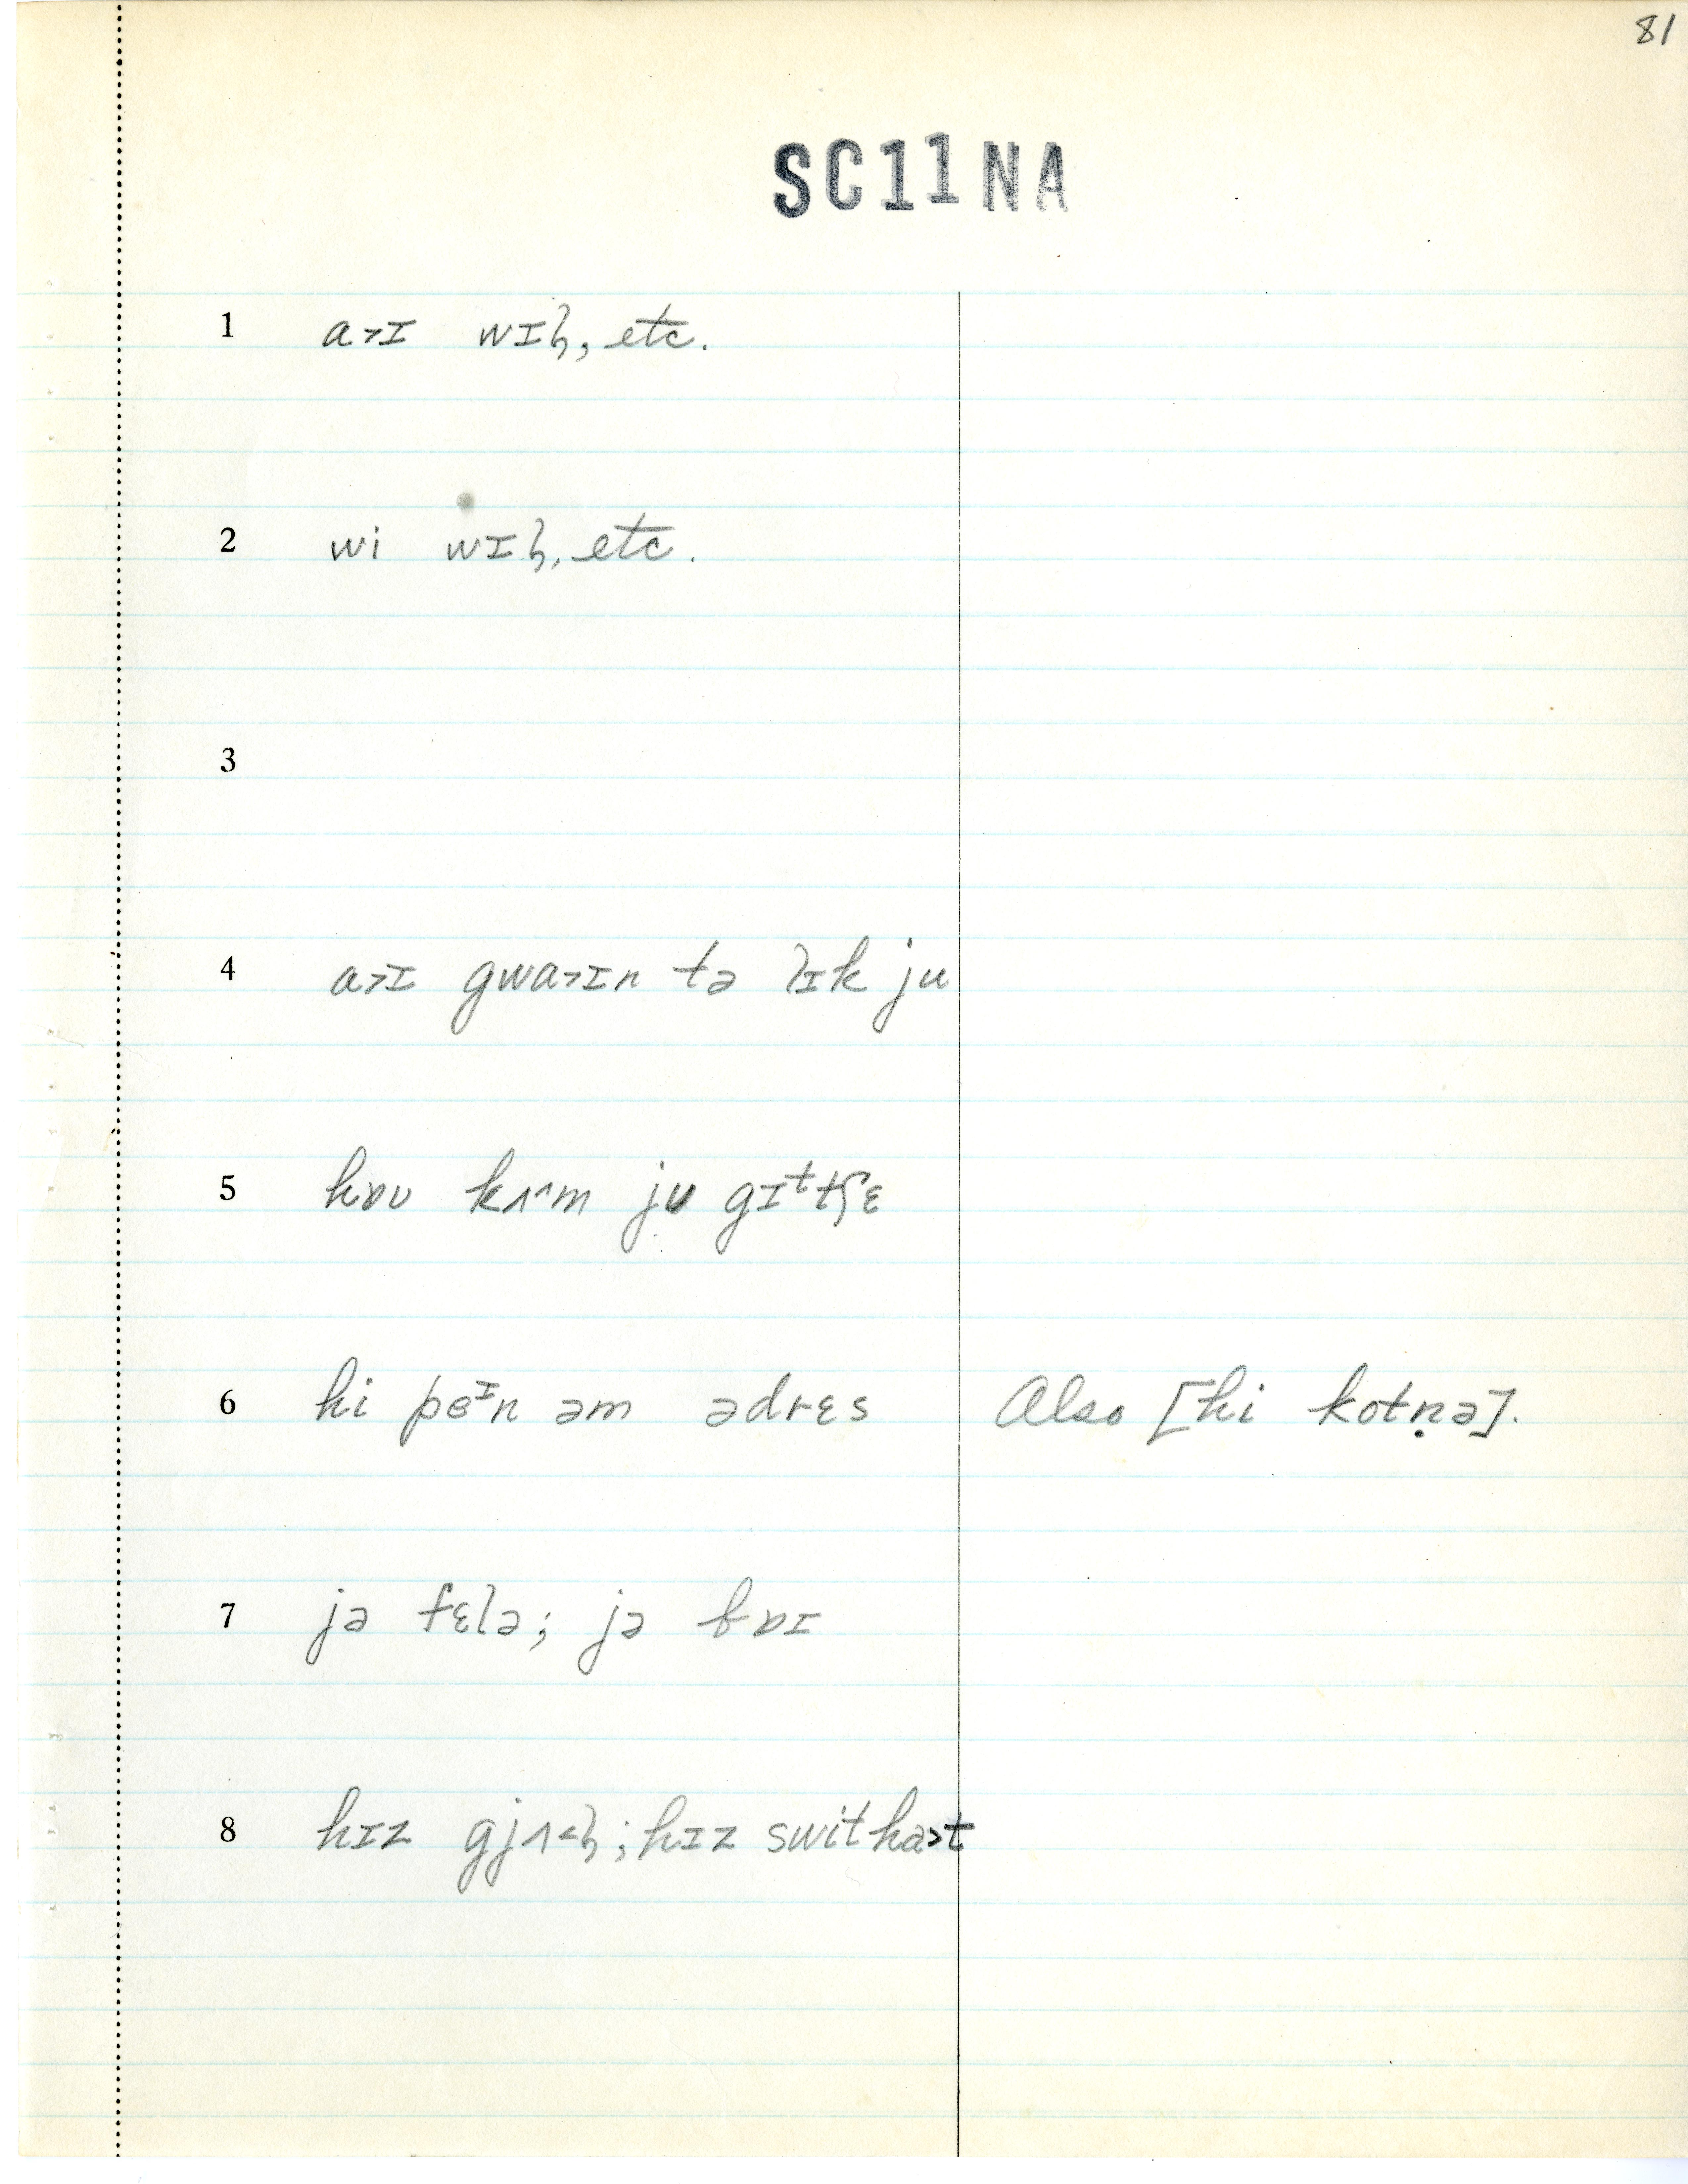 81
SC11NA
1 a˃ɪ wɪʃ, etc.
2 wi wɪʃ, etc.
3
4 a˃ɪ gwa˃ɪn tə lɪk ju
5 hɒʊ kʌ˄m ju gɪᵗtʃɛ
6 hi peᶦn əm ədrɛs Also [hi kotṇə].
7 jə fɛlə; jə bɒɪ
8 hɪz gjʌ˂l; hɪz swit ha˃t